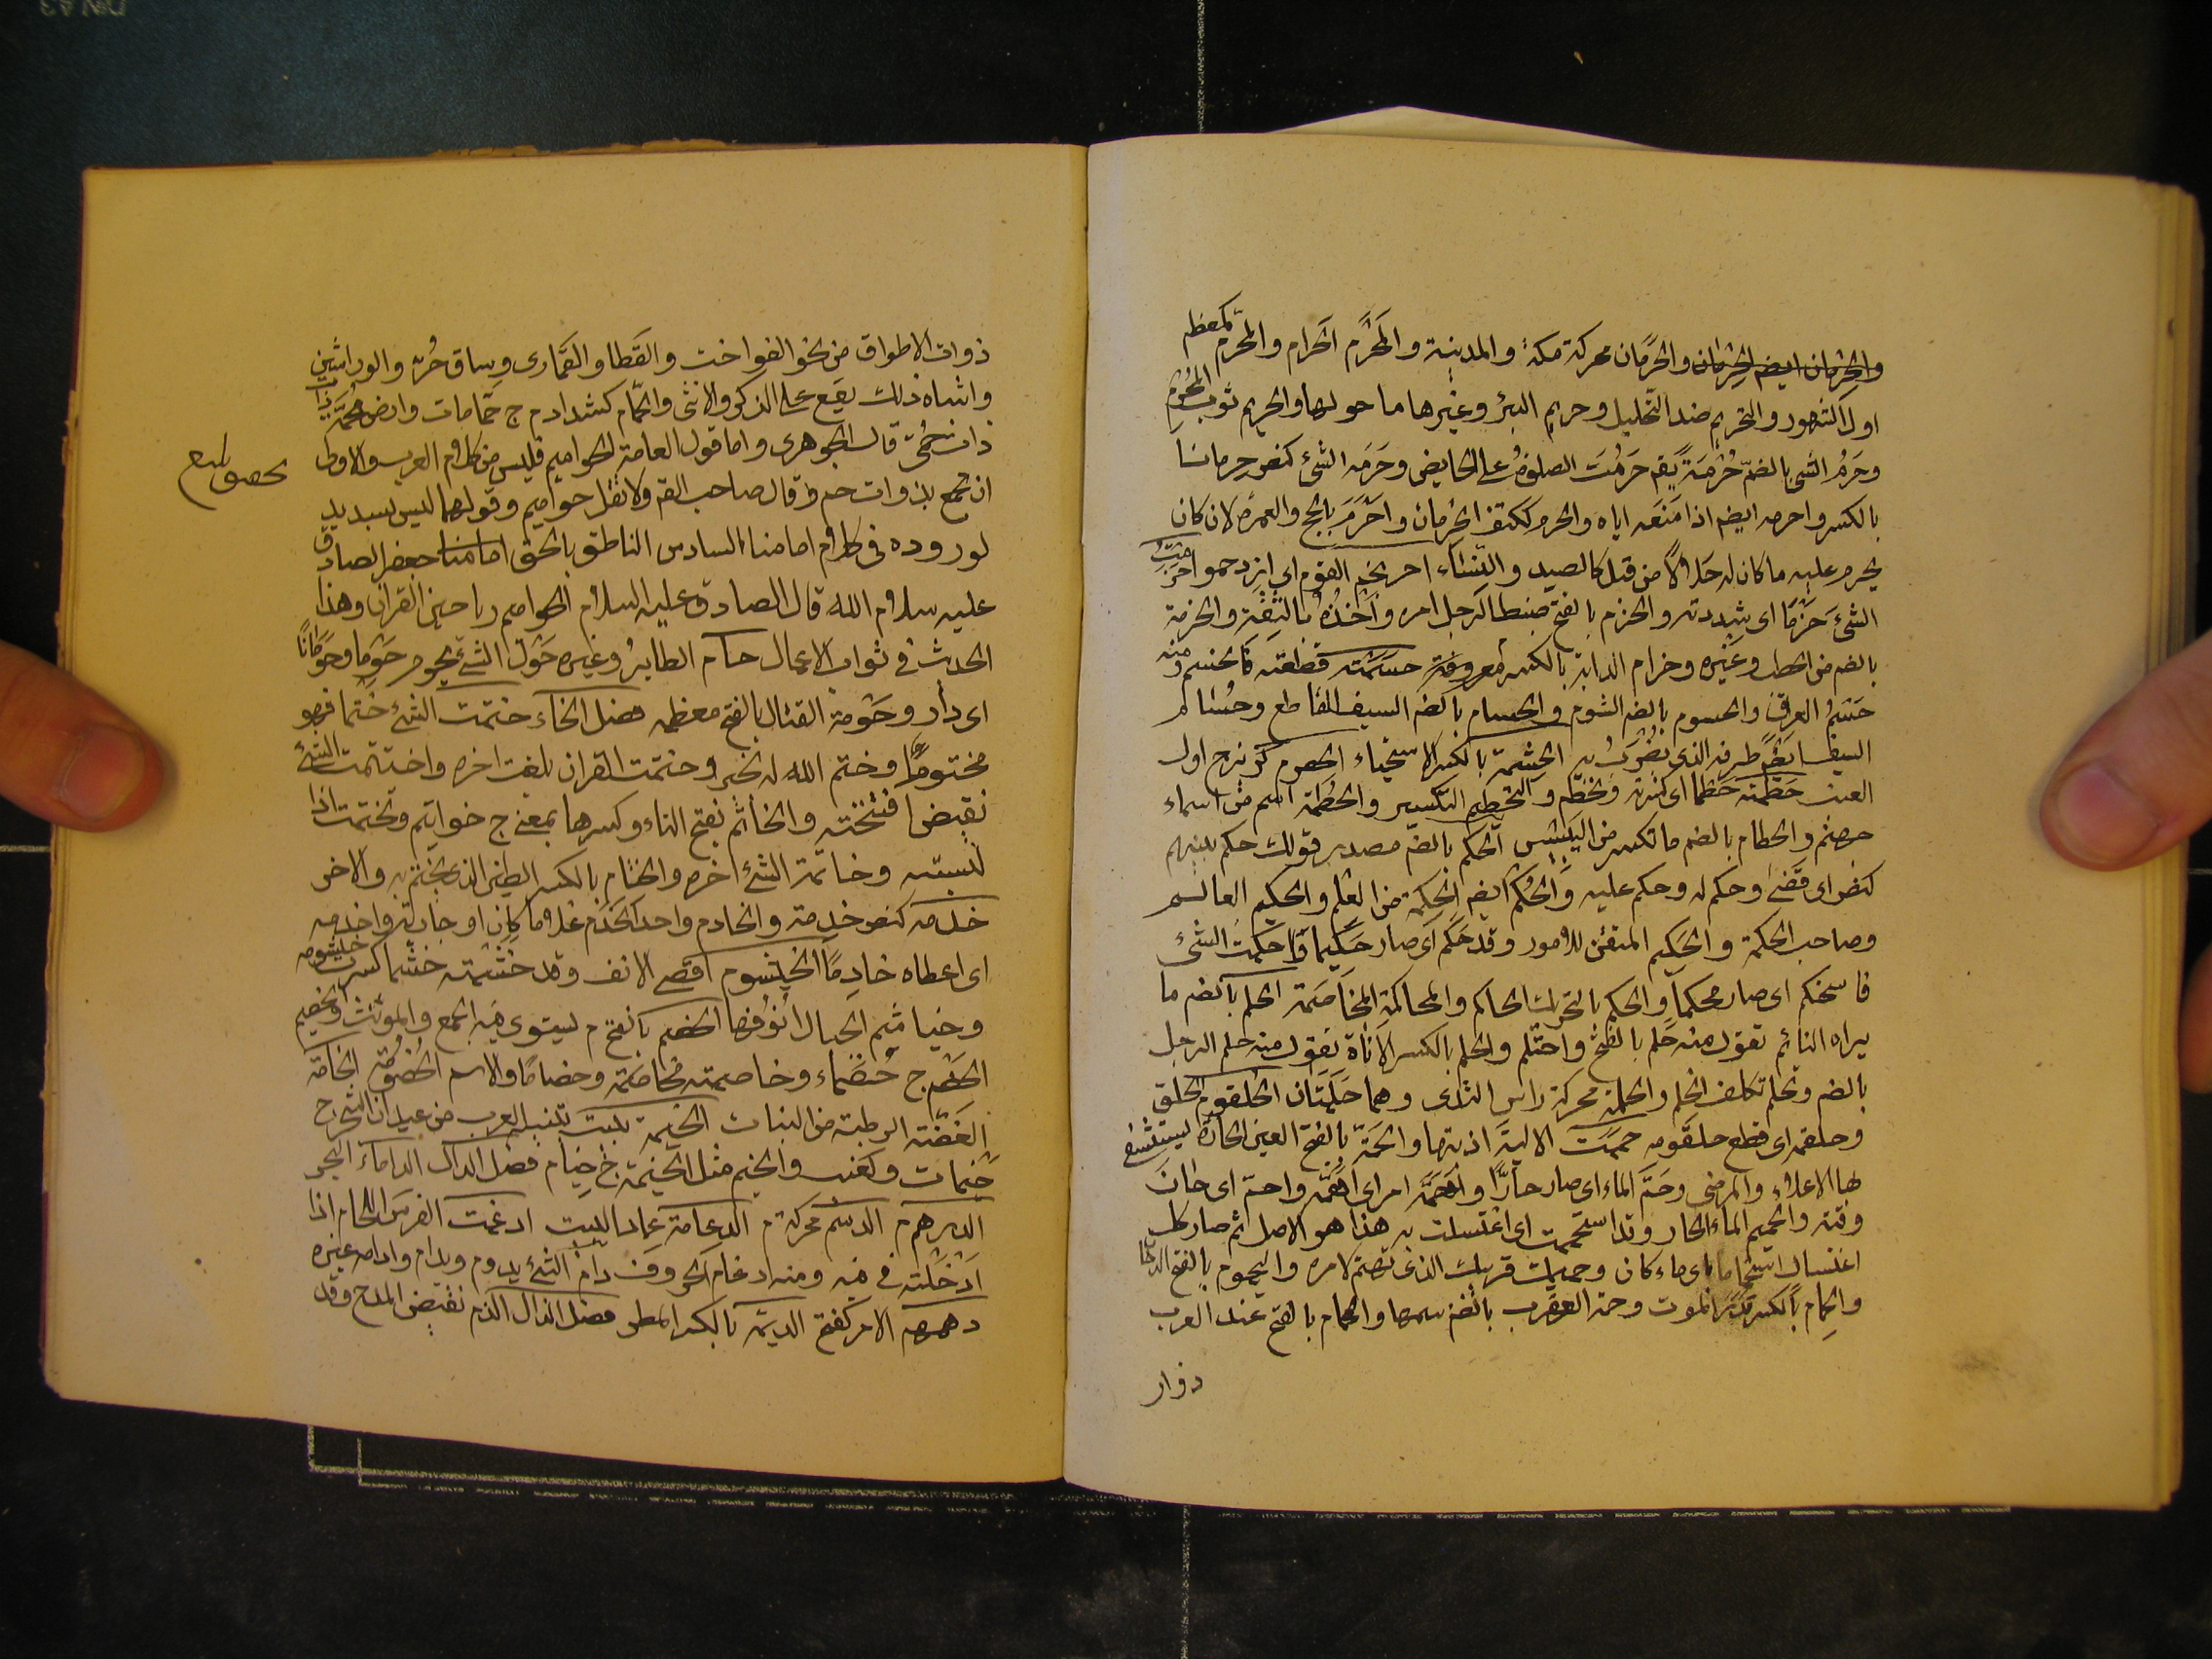 والحرمان ايضم الحرمان والحَرَمان محركة مكة والمدينة والمُحَرَّم الحَرام والمحرّم كمعظم
اول الشهور والتحريم ضد التحليل وحريم البئر وغيرها ما حولها والحريم ثوب المُحْرِم
وحَرُم الشئ بالضمّ حُرْمَةً يقم حَرُمَت الصلوة على الحايض وحَرَمَه الشئ كنصر حرمانا
بالكسر واحرمه ايضم اذا مَنَعَه اياه والحرم ككتف الحِرمان واَحْرَمَ بالحج والعمرة لان كان
يحرم عليه ما كان له حلالاً من قبل كالصيد والنساء احرنجم القوم اى ازدحموا حَزَمْتُ
الشئ حَزْمًا اى شددته والحزم بالفتح ضبط الرجل امره واَخْذُهُ بالثقة والحزمة
بالضم من الحطب وغيره وحزام الدابة بالكسر معروفة حَسَمْتُه قطعته فانحسم ومنه
حَسْمُ العرق والحسوم بالضم الشوم والحسام بالضم السيف القاطع وحُسام
السيف ايضم طرفه الذى يُضرَبُ به الحشمة بالكسر الاستحياء الحصرم كزبرج اول
العنب حَطَمْتُه حَطْمًا اى كسرته وتحطّم والتحطيم التكسير والحُطَمة اسم من اسماء
جهنم والحطام بالضم ما تكسر من اليَبِيس الحكم بالضم مصدر قولك حكم بينهم
كنصر اى قَضى وحكم له وحكم عليه والحُكْم ايضم الحِكمة من العِلم والحكيم العالم
وصاحب الحكمة والحكيم المتقن للامور وقد حَكُم اى صار حكيما واحكمت الشئ
فاستحكم اى صار محكما والحكم بالتحريك الحاكم والمحاكمة المخاصَمة الحلم بالضم ما
يراه النائم تقول منه حَلَم بالفتح واحتلم والحلم بالكسر الاناة تقول منه حلم الرجل
بالضم وتحلم تكلف الحلم والحلمة محركة راس الثدى وهما حَلَمَتان الحلقوم الحلق
وحلقمه اى قطع حلقومه حممت الالية اذبتها والحَمّة بالفتح العين الحارّة يستشفى
بها الاعلاء والمرضى وحَمَّ الماء اى صار حارًّا واَحَمَّه امر اى اَهَمَّه واحتم اى حان
وقته والحميم الماء الحار وقد استحممت اى اغتسلت به هذا هو الاصل ثم صار كل
اغتسال استحماما باى ماء كان وحميمك قريبك الذى تهتم لامره واليحموم بالفتح الدخان
والحِمام بالكسر قَدَر الموت وحمة العقرب بالضم سمها والحمام بالفتح عند العرب
ذوات
ذوات الاطواق من نحو الفواخت والقَطا والقَمارى وساق حُرّ والوراشين
واشباه ذلك يقع على الذكر والانثى والحمّام كشداد م ج حمّامات وارض مُحِمَّة
ذات حُمّى قال الجوهرى واما قول العامة الحواميم فليس من كلام العرب والاولى
ان تجمع بذوات حم وقال صاحب القم ولا تقل حواميم وقولهما ليس بسديد
لوروده فى كلام امامنا السادس الناطق بالحق امامنا جعفر الصادق
عليه سلام الله قال الصادق عليه السلام الحواميم رياحين القران وهذا
الحديث فى ثواب الاعمال حام الطاير وغيره حول الشئ يحوم حَوْما وحَوَمانًا
اى دار وحَوْمة القتال بالفتح معظمه فصل الخاء ختمت الشئ خَتْما فهو
مختوم وختم الله له بخير وختمت القران بلغت اخره واختتمت الشئ
نقيض افتتحته والخاتم بفتح التاء وكسرها بمعنى ج خواتيم وتختمت اذا
لبسته وخاتمة الشئ اخره والختام بالكسر الطين الذى يختم به والاخر
خدمه كنصر خدمة والخادم واحد الخَدَم غلاما كان او جارية واخدمه
اى اعطاه خادمًا الخيشوم اقصى الانف وقد خَشَمْته خشما كسرت خيشومه
وخياشيم الجبال اُنُوفُها الخصم بالفتح م يستوى فيه الجمع والمؤنث والخصيم
الخصم ج خُصَماء وخاصمته مخاصَمَة وخصامًا والاسم الخُصومَة الخامة
الغَضّة الرطبة من النبات الخيمة بيت تبنيه العرب من عيدان الشجر ج
خيمات وكعنب والخيم مثل الخيمة ج خِيام فصل الدال الداماء البحر
الدرهم م الدسم محركة م الدعامة عماد البيت ادغمت الفرس اللجام اذا
اَدْخَلْته فى فيه ومنه ادغام الحروف دام الشئ يدوم ويدام وادامه غيره
دهمهم الامر كفتح الديمة بالكسر المطر فصل الذال الذم نقيض المدح وقد